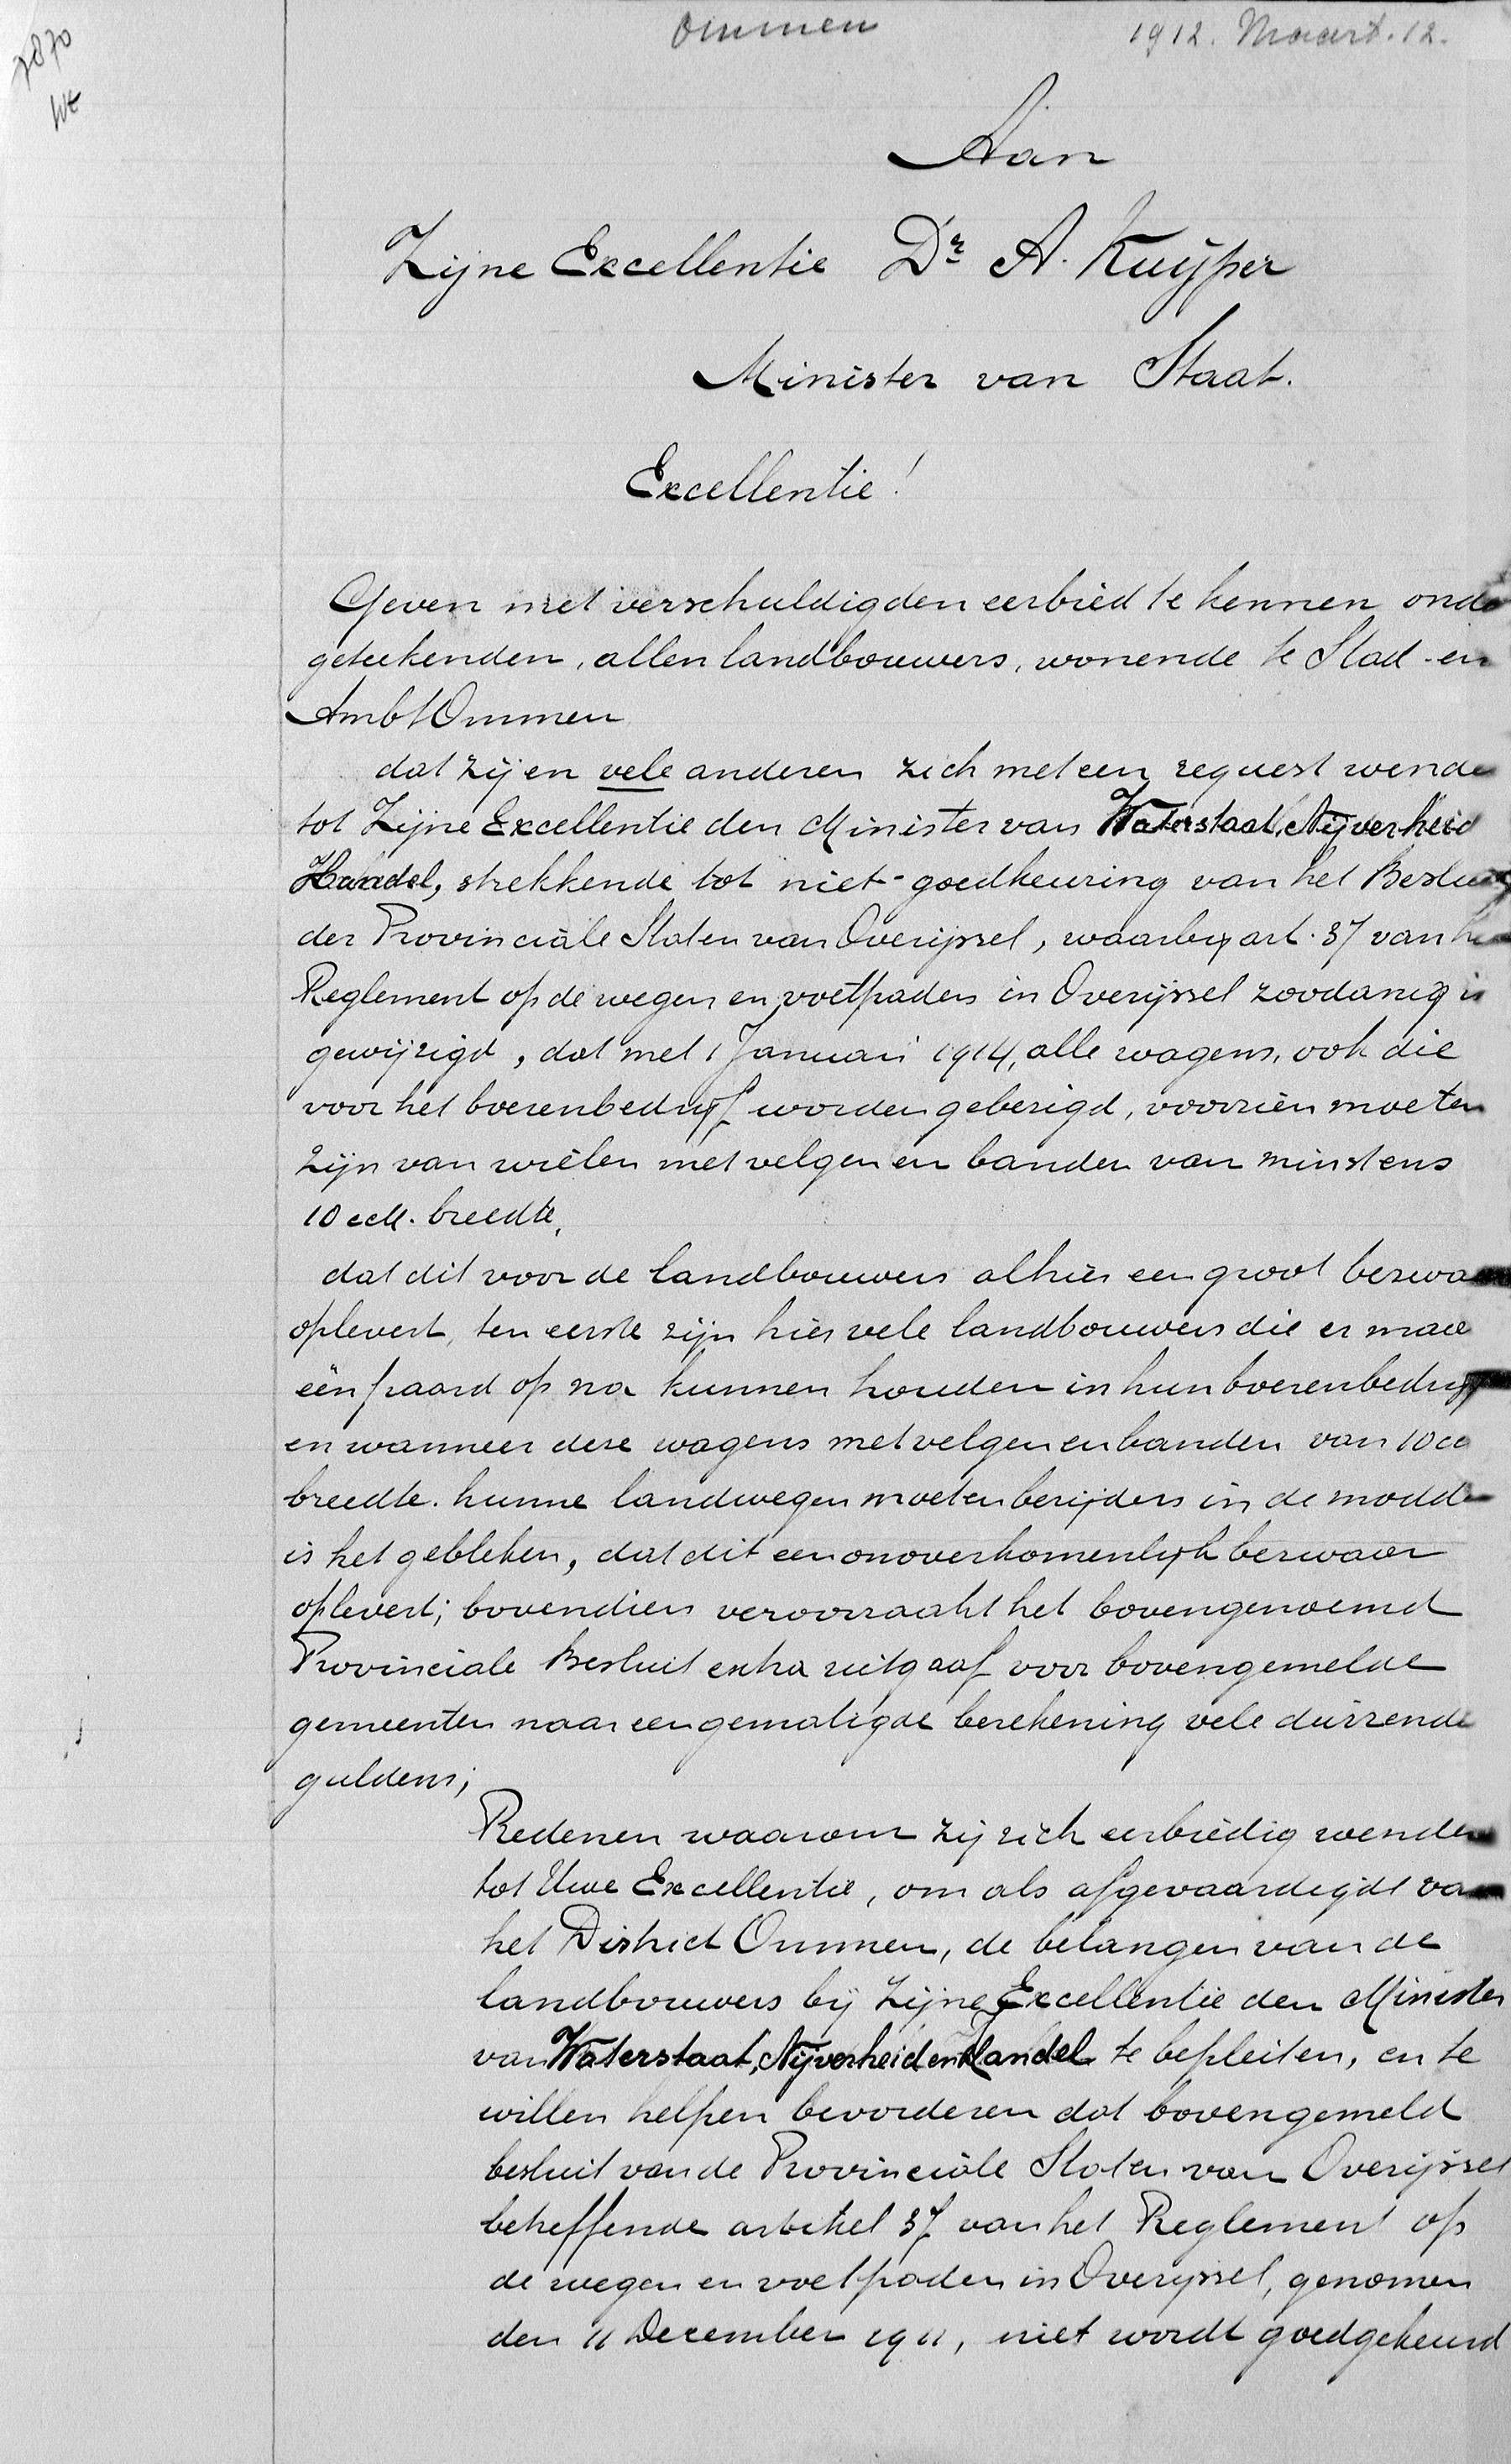 7870
Ommen 1912. Maart. 12.
Aan
Zijne Excellentie Dr. A. Kuijper
Minister van Staat.
Excellentie!
Geven met verschuldigden eerbied te kennen onde
geteekenden, allen landbouwers, wonende te Stad-en
Ambt Ommen
dat zij en vele anderen zich met een request wende
tot Zijne Excellentie den Minister van Waterstaat, Nijverheid
Handel, strekkende tot niet-goedkeuring van het Beslui
der Provinciale Staten van Overijssel, waarbij art. 37 van he
Reglement op de wegen en voetpaden in Overijssel zoodanig is
gewijzigd, dat met 1 Januari 1914, alle wagens, ook die
voor het boerenbedrijf worden gebezigd, voorzien moeten
zijn van wielen met velgen en banden van minstens
10 cM. breedte,
dat dit voor de landbouwers alhier een groot bezwaa
oplevert, ten eerste zijn hier vele landbouwers die er maa
één paard op na kunnen houden in hun boerenbedrijf
en wanneer deze wagens met velgen en banden van 10 c
breedte. hunne landwegen moeten berijden in de modde
is het gebleken, dat dit een onoverkomenlijk bezwaar
oplevert; bovendien veroorzaakt het bovengenoemd
Provinciale Besluit extra uitgaaf voor bovengemelde
gemeenten naar een gematigde berekening vele duizende
guldens;
Redenen waarom zij zich eerbiedig wenden
tot Uwe Excellentie, om als afgevaardigde van
het District Ommen, de belangen van de
landbouwers bij Zijne Excellentie den Minister
van Waterstaat, Nijverheid en Handel te bepleiten, en te
willen helpen bevorderen dat bovengemeld
besluit van de Provinciale Staten van Overijssel
betreffende artikel 37 van het Reglement op
de wegen en voetpaden in Overijssel, genomen
den 11 December 1911, niet wordt goedgekeurd